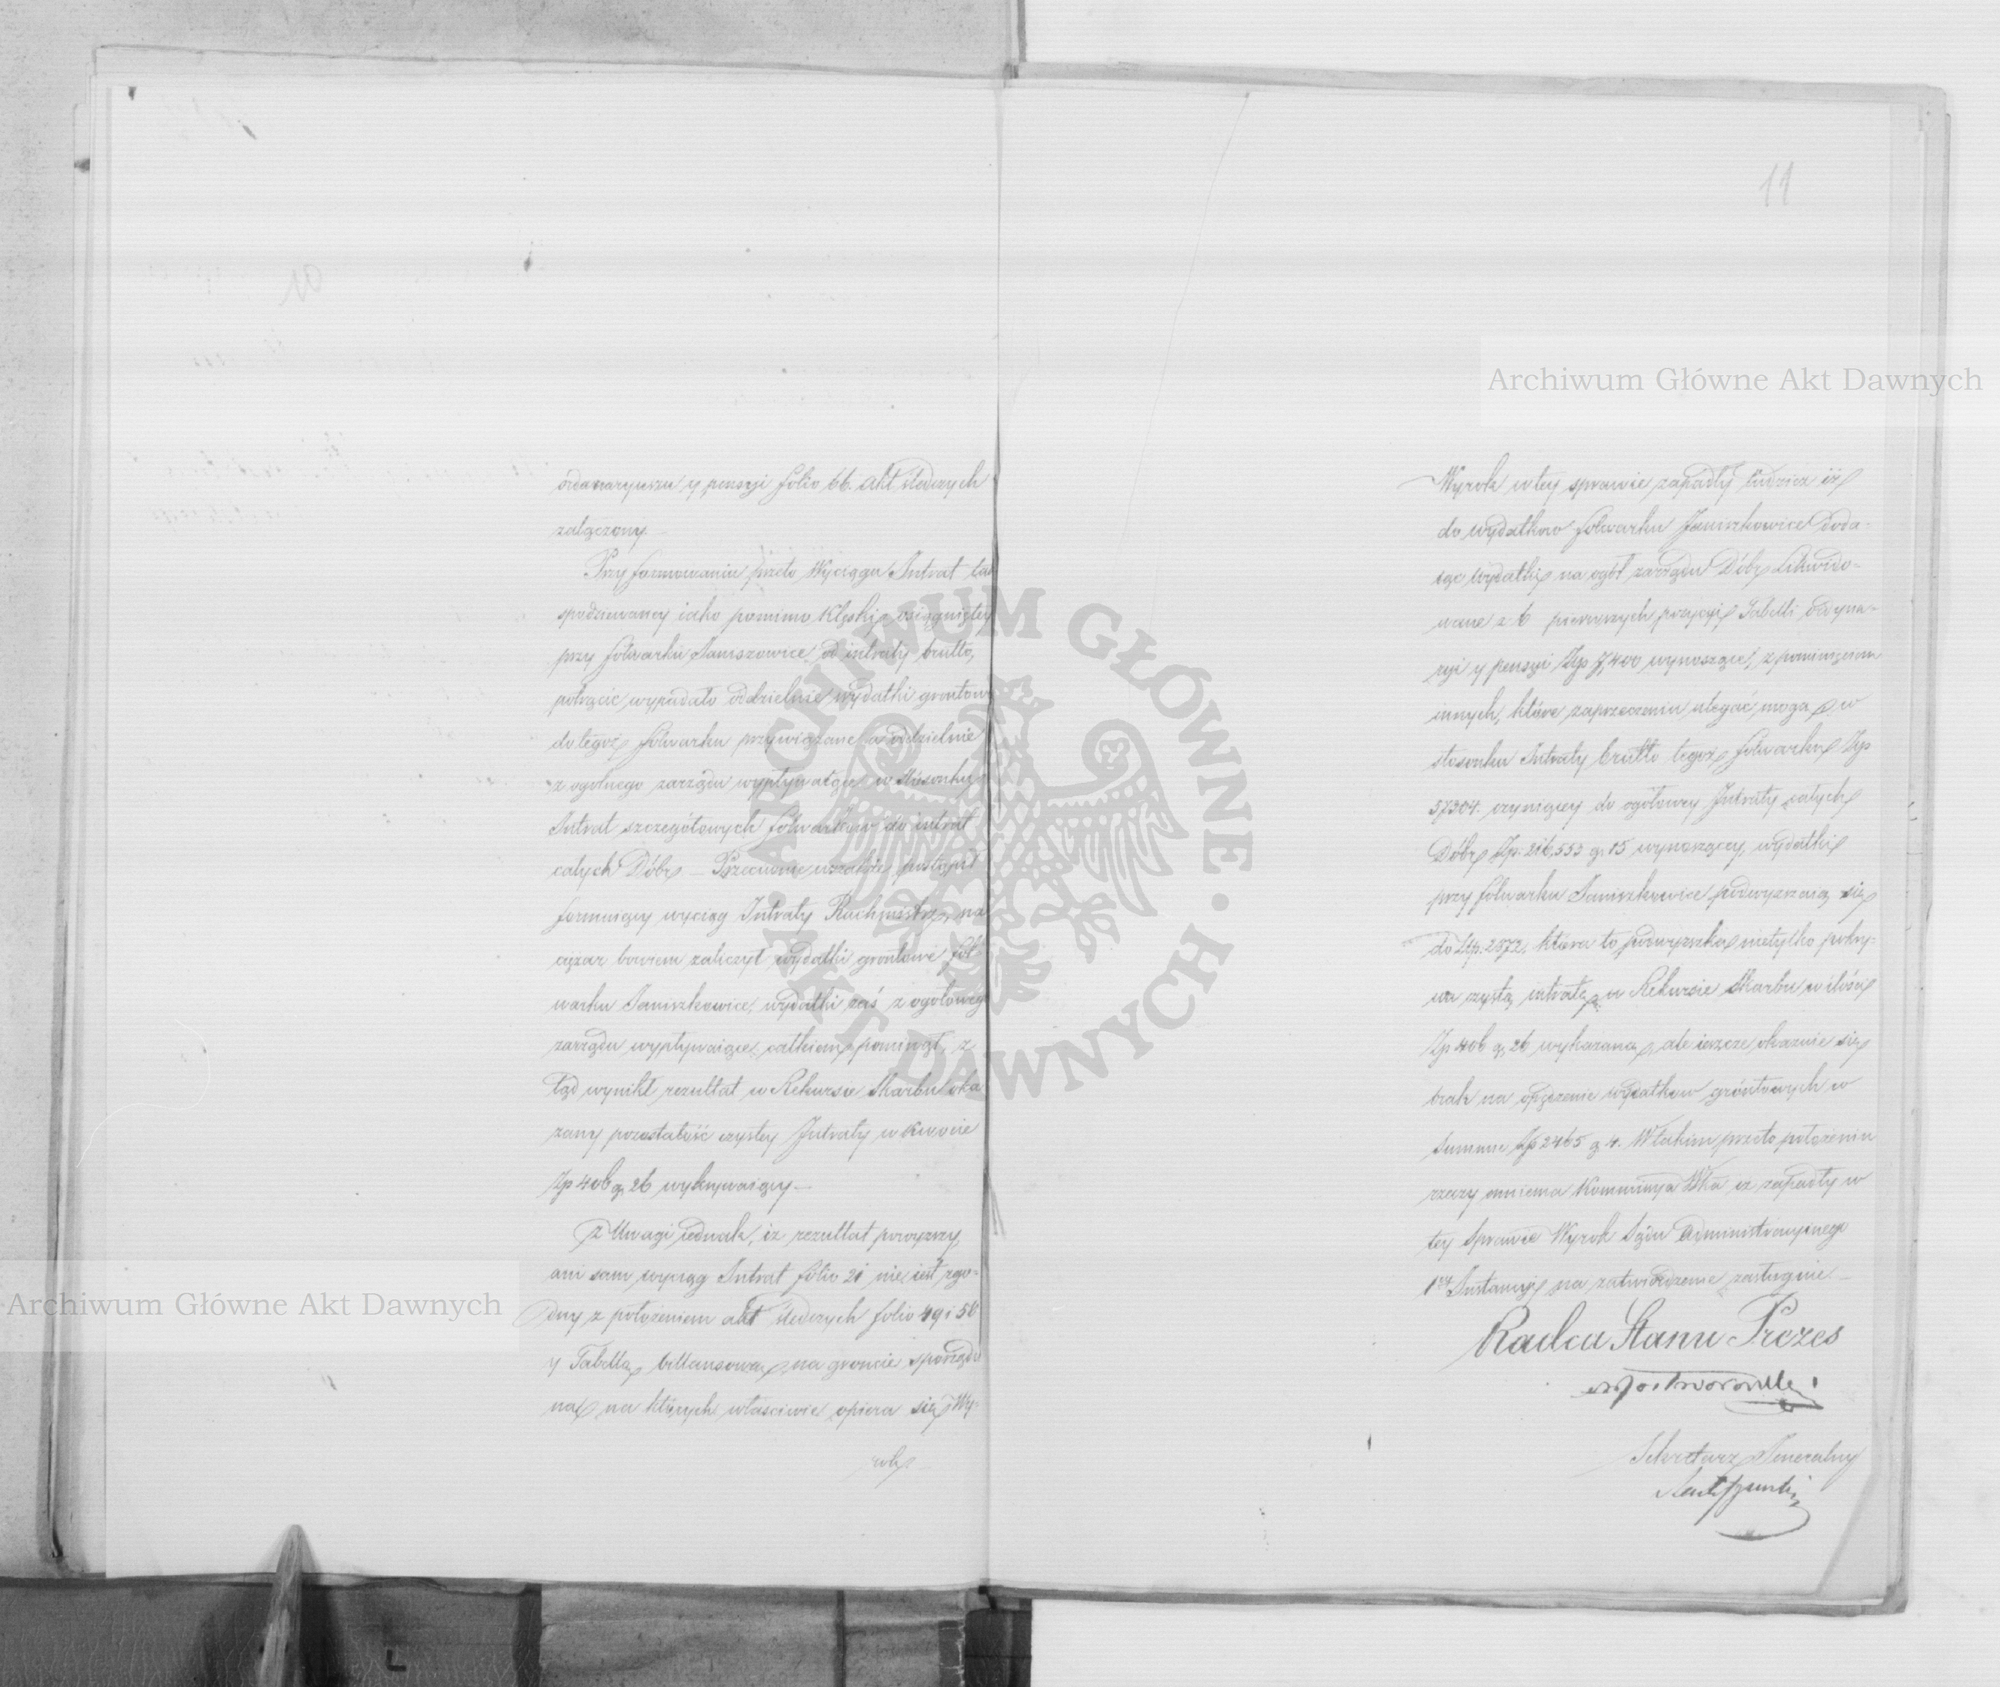 ordynaryusza y pensyi folio 66. akt śledczych
załączony. —
Przy formowaniu przeto Wyciągu Intrat tak
spodziewaney iako pomimo Klęski osiągniętey
przy folwarku Janiszowice, od intraty brutto,
potrącić wypadało oddzielnie wydatki grontowe
do tegoż folwarku przywiązane a oddzielnie
z ogólnego zarządu wypływaiące w stosunku
Intrat szczegółowych folwarków do intrat
całych Dóbr — Przeciwnie wszakże postąpił
formuiący wyciąg Intraty Rachmistrz, na
ciężar bowiem zaliczył wydatki grontowe fol-
warku Janiszkowice, wydatki zaś z ogółowego
zarządu wypływaiące, całkiem pominął, z
tąd wynikł rezultat w Rekursie Skarbu oka
zany pozostałość czystey Intraty w kwocie
Zp 406 g. 26 wykrywaiący —
Z Uwagi iednak, iż rezultat powyższy,
ani sam wyciąg Intrat folio 21 nie iest zgo-
dny z położeniem akt śledczych folio 49 i 58
y Tabellą billansową na groncie sporządzo
ną na których właściwie opiera się Wy-
rok
11
Wyrok w tey sprawie zapadły tudzież iż
do wydatków folwarku Janiszkowice doda-
iąc wydatki na ogół zarządu Dóbr Likwido-
wane z 6 pierwszych pozycyi Tabelli Ordyna-
ryi y pensyi Zlp 7,400 wynoszące, z pominięciem
innych, które zaprzeczeniu ulegać mogą, w
stosunku Intraty brutto tegoż folwarku Zlp
57304. czyniącey do ogółowey Intraty całych
Dóbr Zlp. 216,553 g. 15 wynoszącey, wydatki
przy folwarku Janiszkowice podwyższaią się
do Zlp. 2872, która to podwyższka nietylko pokry-
wa czystą intratę w Rekursie Skarbu w ilości
Zp 406 g. 26 wykazaną, ale ieszcze okazuie się
brak na opędzenie wydatków gróntowych w
Summie Zp 2465 g 4. W takim przeto położeniu
rzeczy mniema Kommissya Wka iż zapadły w
tey Sprawie Wyrok Sądu Administracyinego
1ey Instancyi na zatwierdzenie zasługuie. —
Radca Stanu Prezes
Sekretarz Jeneralny
Archiwum Główne Akt Dawnych
Archiwum Główne Akt Dawnych
ARCHIWUM GŁÓWNE AKT DAWNYCH